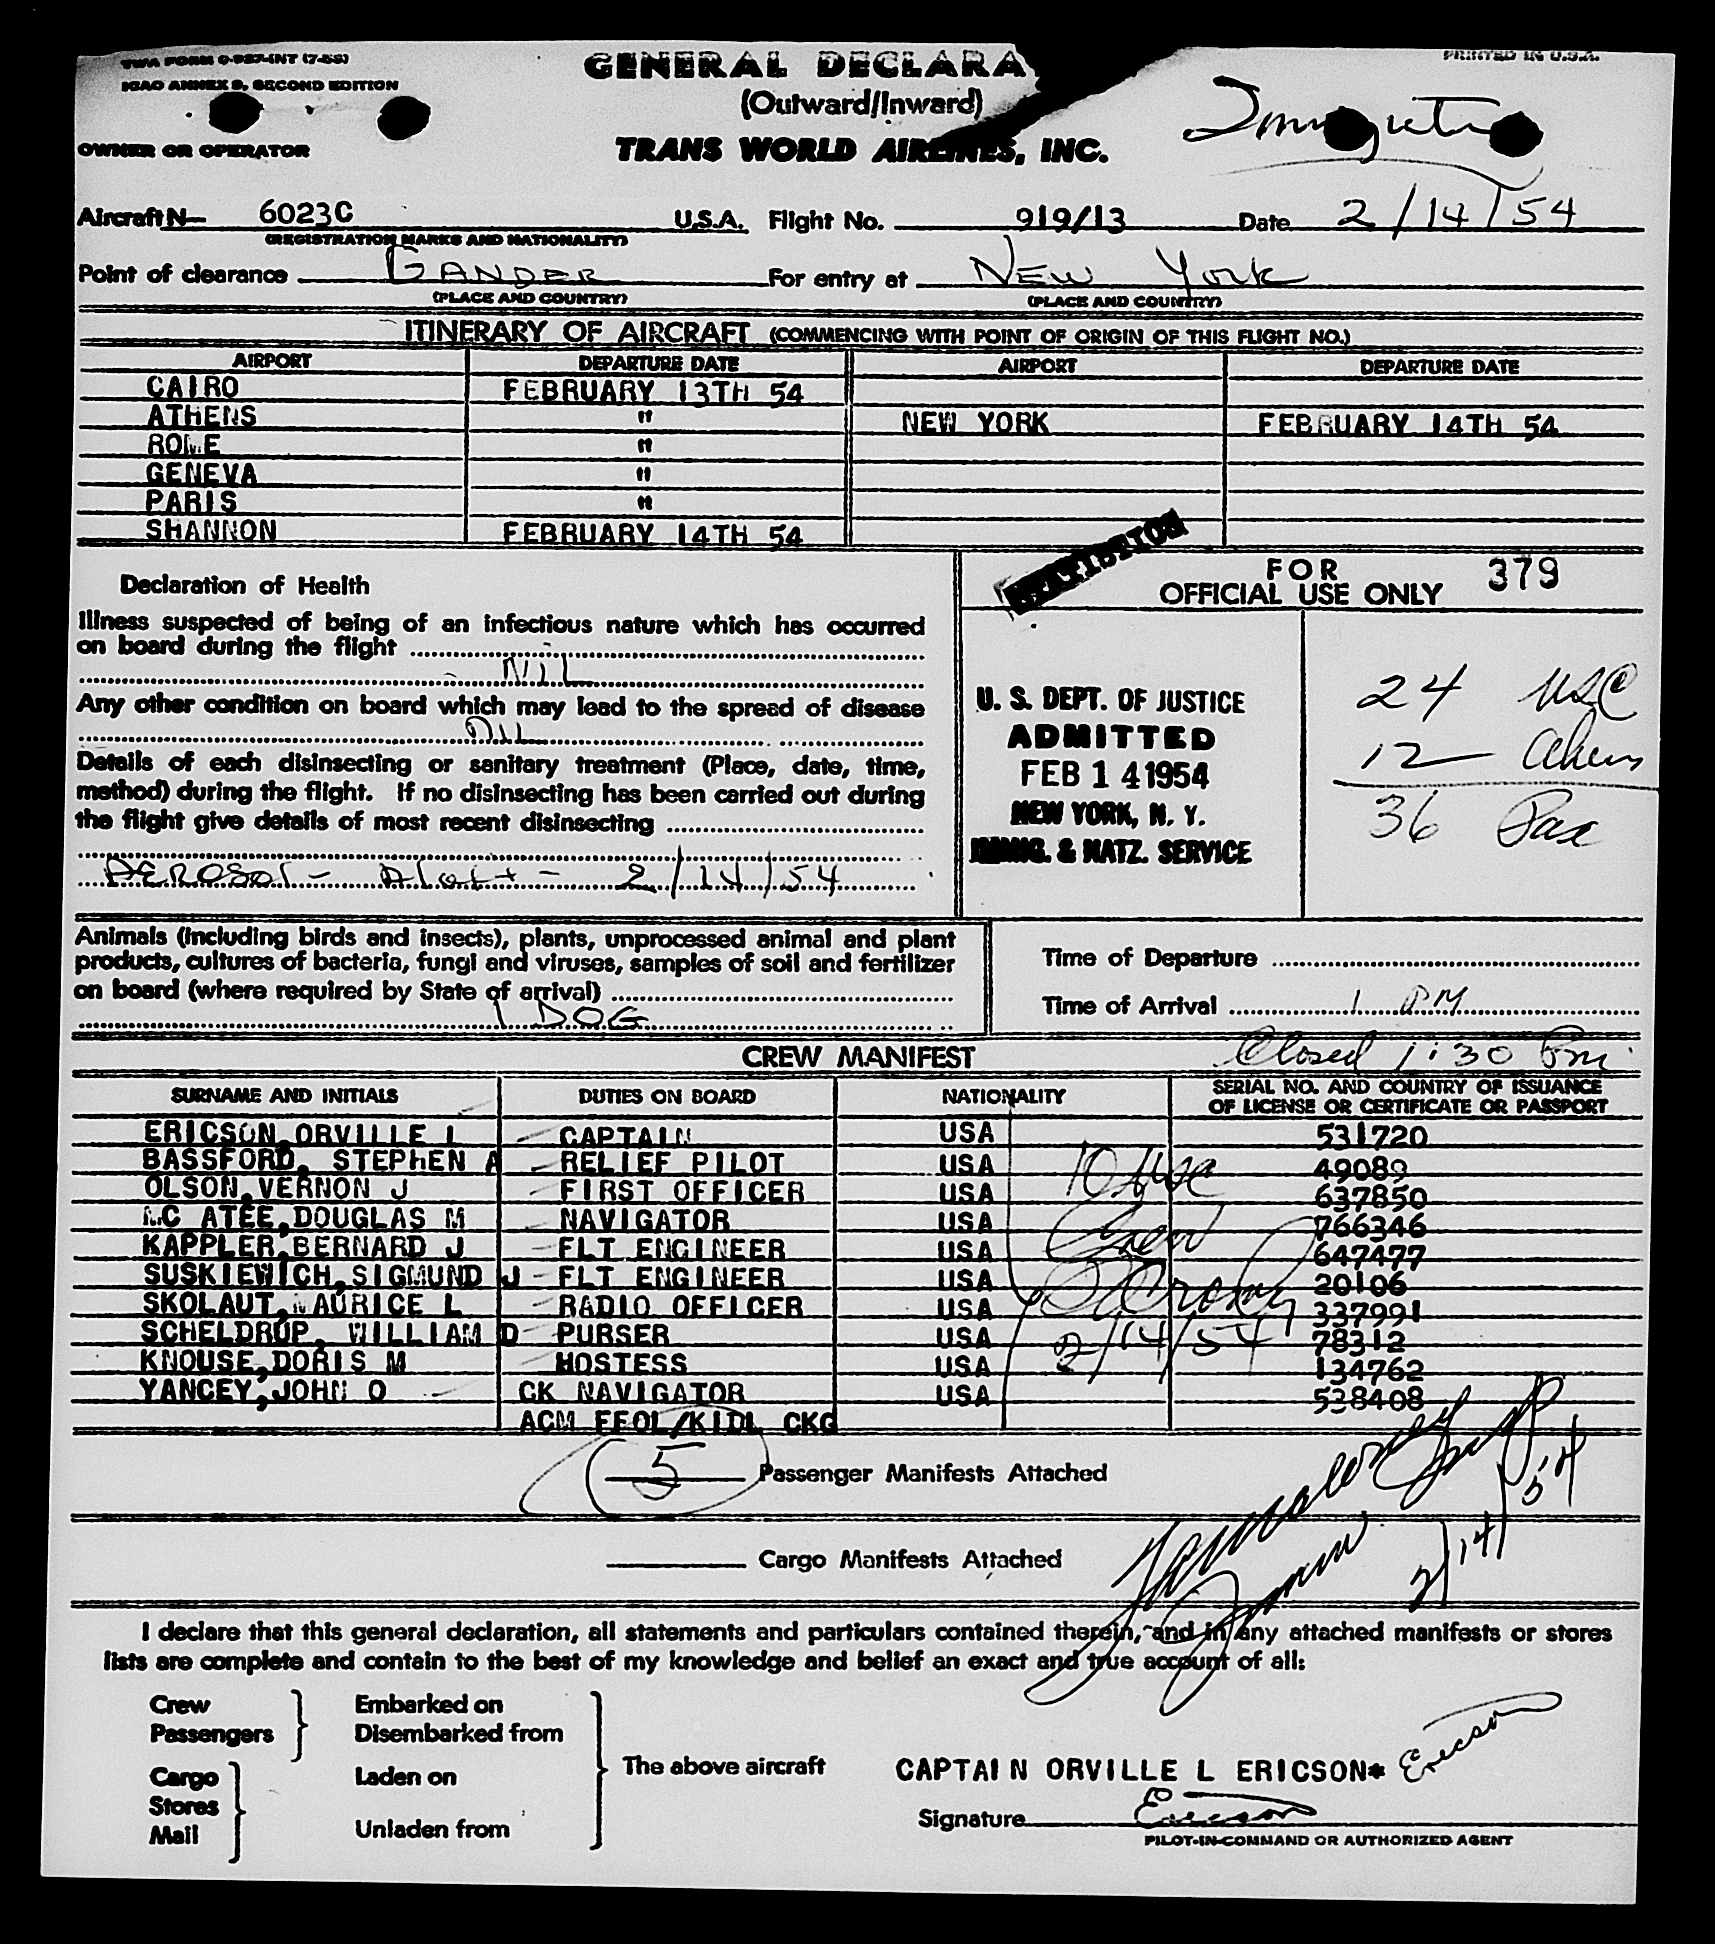 TWA FORM O-927-INT (7-53)
ICAO ANNEX 9, SECOND EDITION
PRINTED IN U.S.A.
GENERAL DECLARA
(Outward/Inward)
OWNER OR OPERATOR TRANS WORLD AIRLINES, INC.
Aircraft N- 6023C U.S.A. Flight No. 919/13 Date 2/14/54
(REGISTRATION MARKS AND NATIONALITY)
Point of clearance GANDER For entry at NEW York
(PLACE AND COUNTRY) (PLACE AND COUNTRY)
ITINERARY OF AIRCRAFT (COMMENCING WITH POINT OF ORIGIN OF THIS FLIGHT NO.)
AIRPORT DEPARTURE DATE AIRPORT DEPARTURE DATE
CAIRO FEBRUARY 13TH 54
ATHENS " NEW YORK FEBRUARY 14TH 54
ROME "
GENEVA "
PARIS "
SHANNON FEBRUARY 14TH 54
FOR
OFFICIAL USE ONLY 379
Declaration of Health
Illness suspected of being of an infectious nature which has occurred
on board during the flight
NIL
Any other condition on board which may lead to the spread of disease
NIL
Details of each disinsecting or sanitary treatment (Place, date, time,
method) during the flight. If no disinsecting has been carried out during
the flight give details of most recent disinsecting
AEROSOL - 2/14/54
U. S. DEPT. OF JUSTICE
ADMITTED
FEB 14 1954
NEW YORK, N. Y.
IMMIG. & NATZ. SERVICE
24 USC
12 Aliens
36 Pax
Animals (including birds and insects), plants, unprocessed animal and plant
products, cultures of bacteria, fungi and viruses, samples of soil and fertilizer
on board (where required by State of arrival)
1 DOG
Time of Departure
Time of Arrival 1 PM
Closed 1:30 Pm
CREW MANIFEST
SURNAME AND INITIALS DUTIES ON BOARD NATIONALITY SERIAL NO. AND COUNTRY OF ISSUANCE
OF LICENSE OR CERTIFICATE OR PASSPORT
ERICSON,ORVILLE L CAPTAIN USA 531720
BASSFORD, STEPHEN A RELIEF PILOT USA 49089
OLSON,VERNON J FIRST OFFICER USA 637850
MC ATEE,DOUGLAS M NAVIGATOR USA 766346
KAPPLER,BERNARD J FLT ENGINEER USA 647477
SUSKIEWICH,SIGMUND J FLT ENGINEER USA 20106
SKOLAUT,MAURICE L RADIO OFFICER USA 337991
SCHELDRUP, WILLIAM D PURSER USA 78312
KNOUSE,DORIS M HOSTESS USA 134762
YANCEY,JOHN O CK NAVIGATOR USA 538408
ACM FFOL/KIDL CKG
10 USC
Crew
2/14/54
5 Passenger Manifests Attached
Cargo Manifests Attached
2/14/54
I declare that this general declaration, all statements and particulars contained therein, and in any attached manifests or stores
lists are complete and contain to the best of my knowledge and belief an exact and true account of all:
Crew Embarked on
Passengers Disembarked from
The above aircraft
Cargo Laden on
Stores
Mail Unladen from
CAPTAIN ORVILLE L ERICSON* Ericson
Signature Ericson
PILOT-IN-COMMAND OR AUTHORIZED AGENT